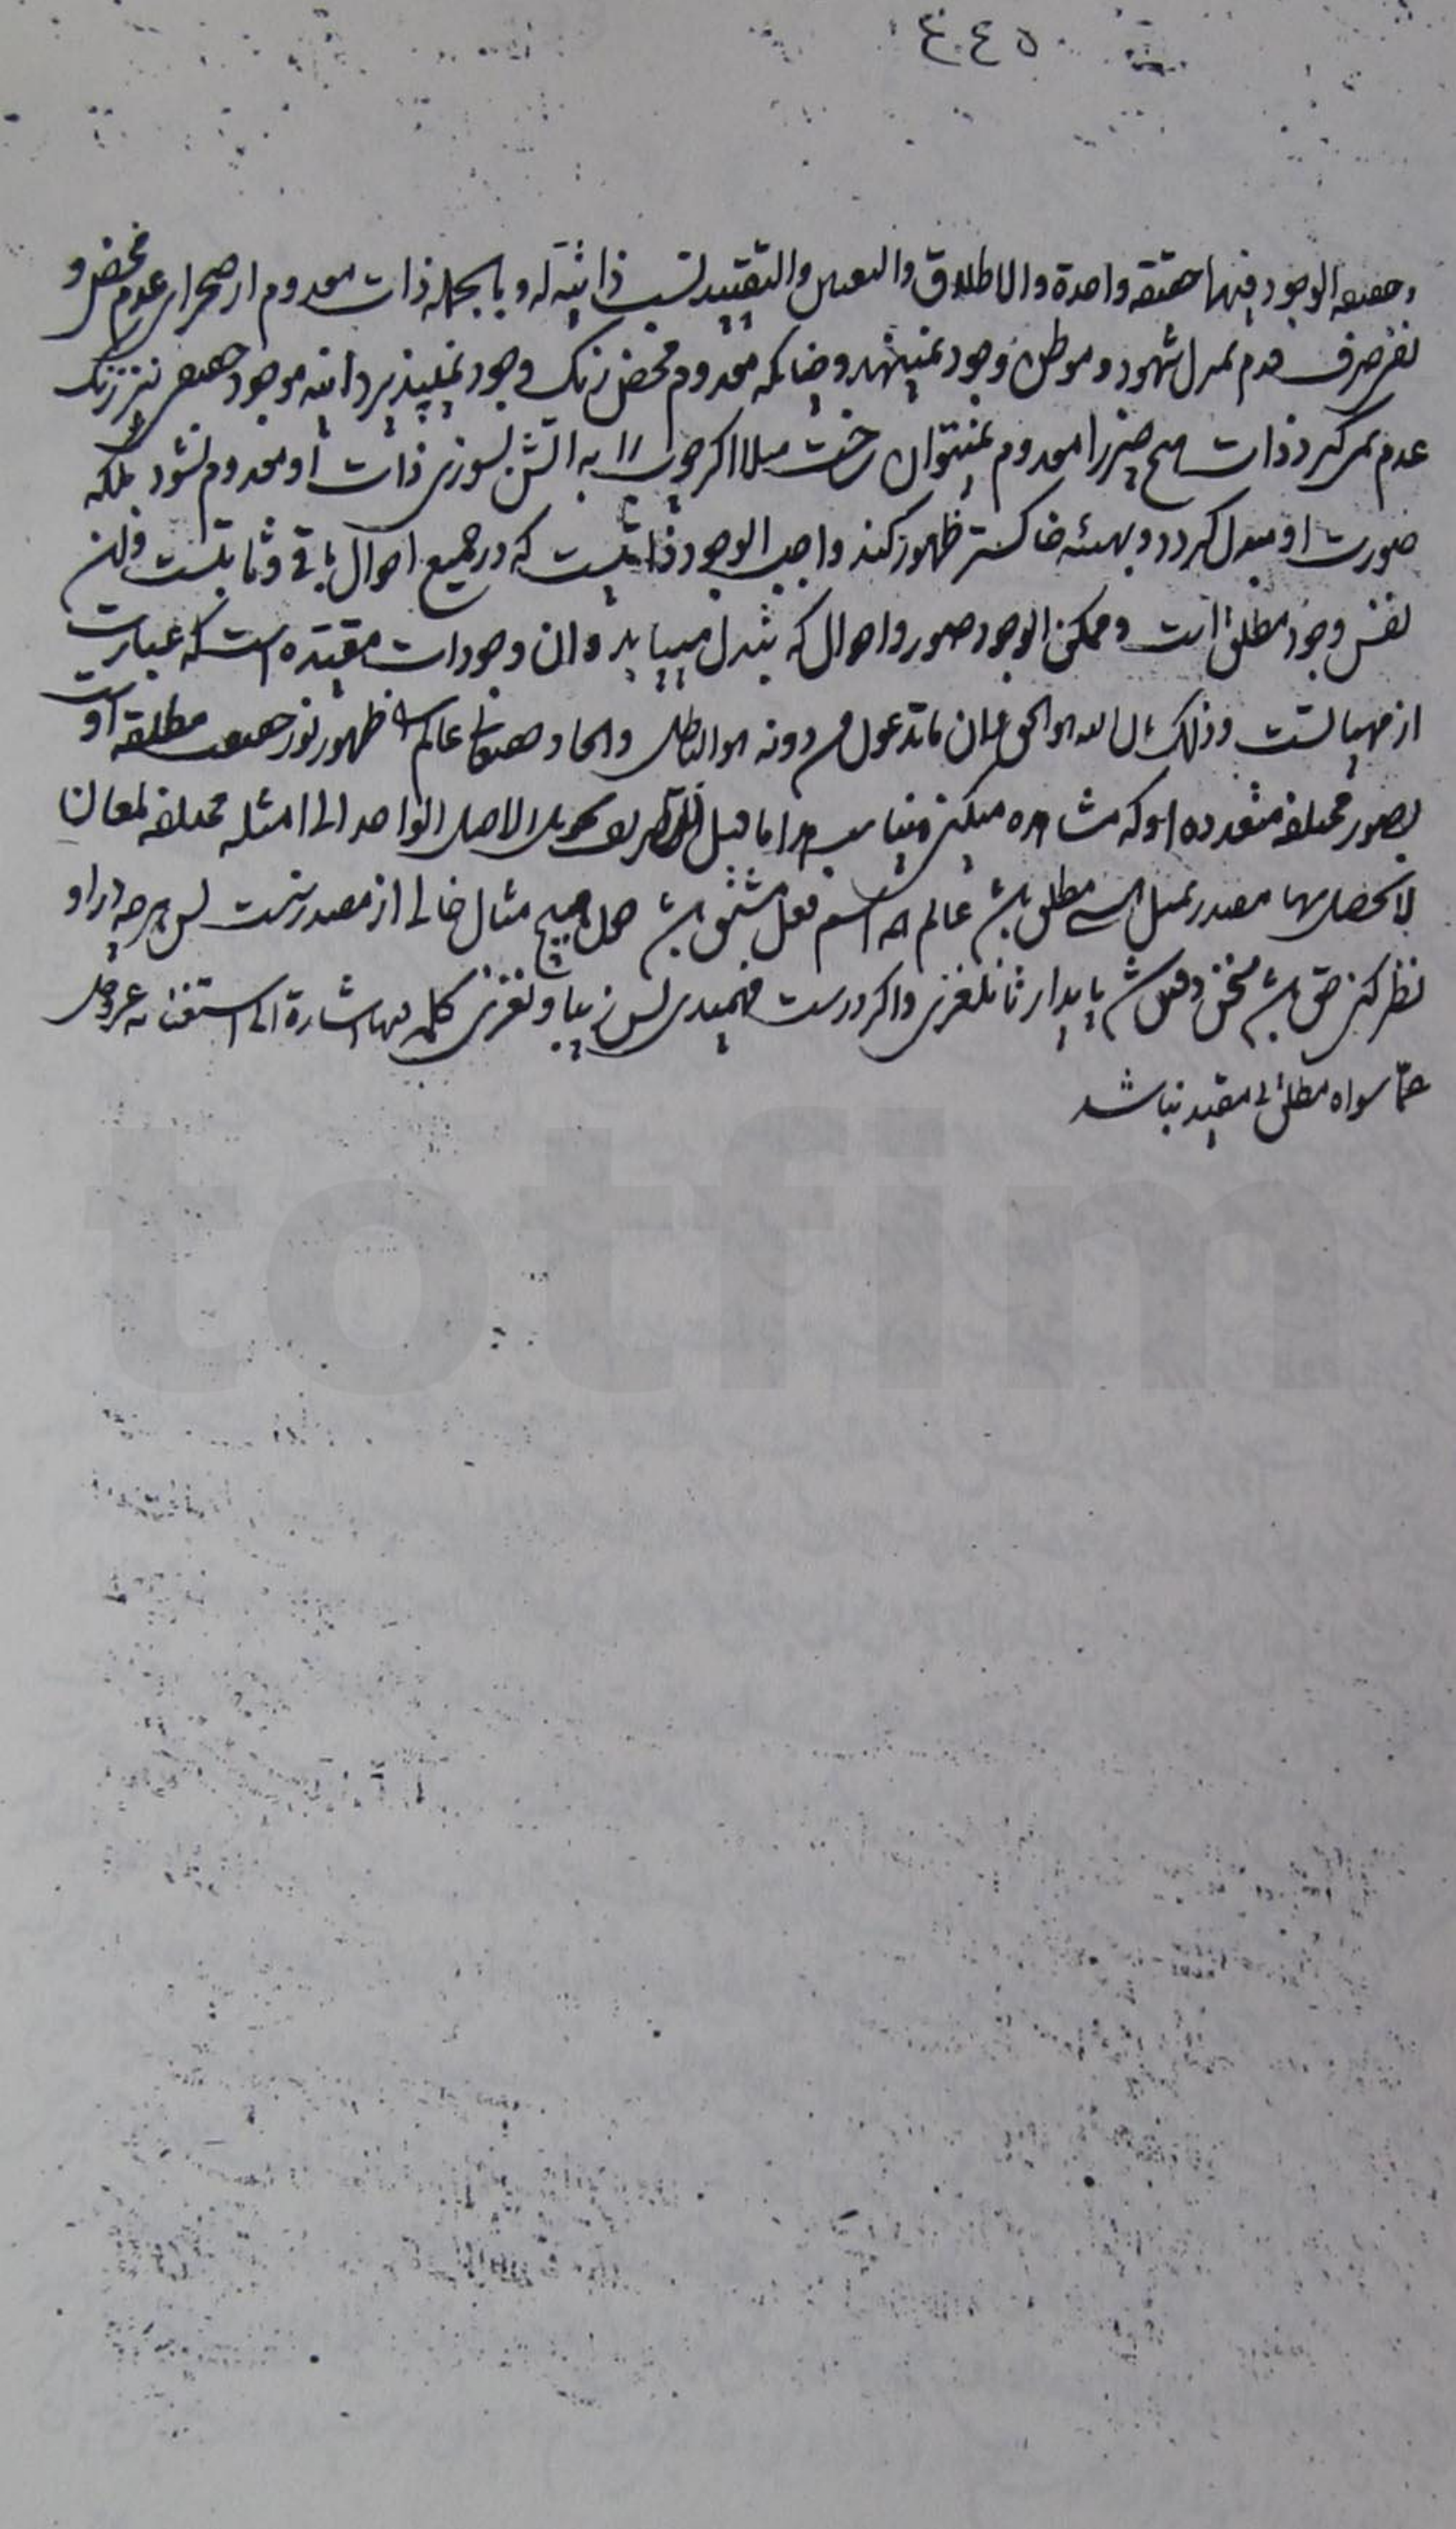 ٤٤٥
وحقیقه الوجود فیها حقیقة واحدة والاطلاق والتعین والتقیید نسب ذاتیة له و بالجمله ذات معدوم از صحرای عدم محض و
صرف قدم بمنزل شهود و موطن وجود نمینهد و چنانکه معدوم محض رنگ وجود نمیپذیرد البته موجود حقیقی نیز رنگ
عدم نمی‌گیرد ذات هیچ چیز را معدوم نمیتوان ساخت مثلا اگر چوب را به اتش بسوزی ذات او معدوم نشود بلکه
صورت او مبدل گردد و بهیئه خاکستر ظهور کند واجب الوجود ذاتیست که در جمیع احوال باقی و ثابتست وان
نفس وجود مطلق است و ممکن الوجود صور و احوال که تبدل مییابد وان وجودات مقیده است که عبارت
از مهیاتست وذلک بان الله هو الحق وان ما تدعون من دونه هو الباطل حقایق عالم ظهور نور حقیقت مطلقه اوست
بصور مختلفه متعدده او که مشاهده میکنی الاصل الواحد الی امثله مختلفه لمعان
لا تحصل الا بها مصدر بمثل مطلق عالم اسم فعل مشتق چون هیچ مثال خالی از مصدر نیست پس هرچه در او
نظر کنی حق سخن دقیق پایدار تا نلغزی واگر درست فهمیدی بس زیبا و نغزی کلمه فیها اشارة الی استغنائه عز وجل
عمّا سواه مطلق بی مقید نباشد
totfim